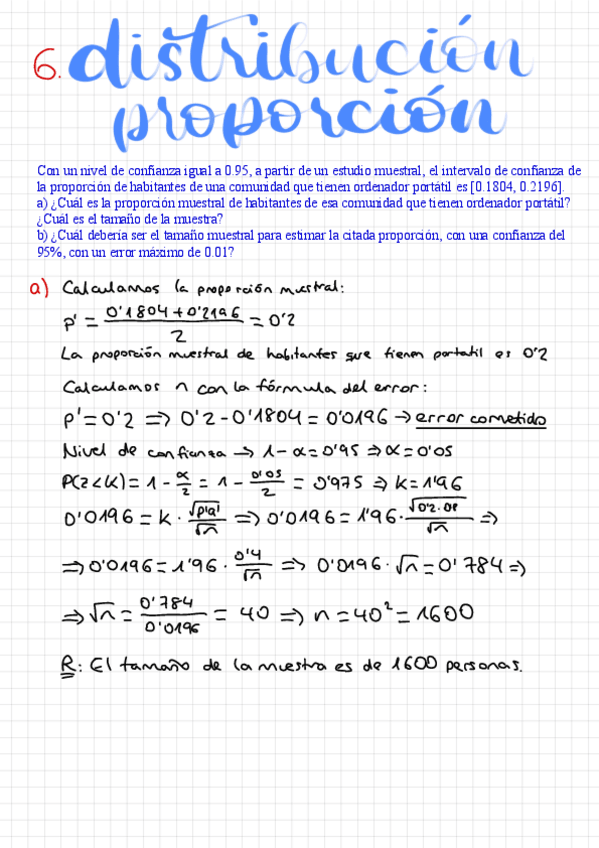 6. distribución
proporción
Con un nivel de confianza igual a 0.95, a partir de un estudio muestral, el intervalo de confianza de
la proporción de habitantes de una comunidad que tienen ordenador portátil es [0.1804, 0.2196].
a) ¿Cuál es la proporción muestral de habitantes de esa comunidad que tienen ordenador portátil?
¿Cuál es el tamaño de la muestra?
b) ¿Cuál debería ser el tamaño muestral para estimar la citada proporción, con una confianza del
95%, con un error máximo de 0.01?
a) Calculamos la proporción muestral:
p' = (0'1804 + 0'2196)/2 = 0'2
La proporción muestral de habitantes que tienen portatil es 0'2
Calculamos n con la fórmula del error:
p' = 0'2 ⇒ 0'2 - 0'1804 = 0'0196 → error cometido
Nivel de confianza → 1 - α = 0'95 ⇒ α = 0'05
P(z < k) = 1 - α/2 = 1 - 0'05/2 = 0'975 ⇒ k = 1'96
0'0196 = k · √p'q'/√n ⇒ 0'0196 = 1'96 · √0'2·0'8/√n ⇒
⇒ 0'0196 = 1'96 · 0'4/√n ⇒ 0'0196 · √n = 0'784 ⇒
⇒ √n = 0'784/0'0196 = 40 ⇒ n = 40² = 1600
R: El tamaño de la muestra es de 1600 personas.